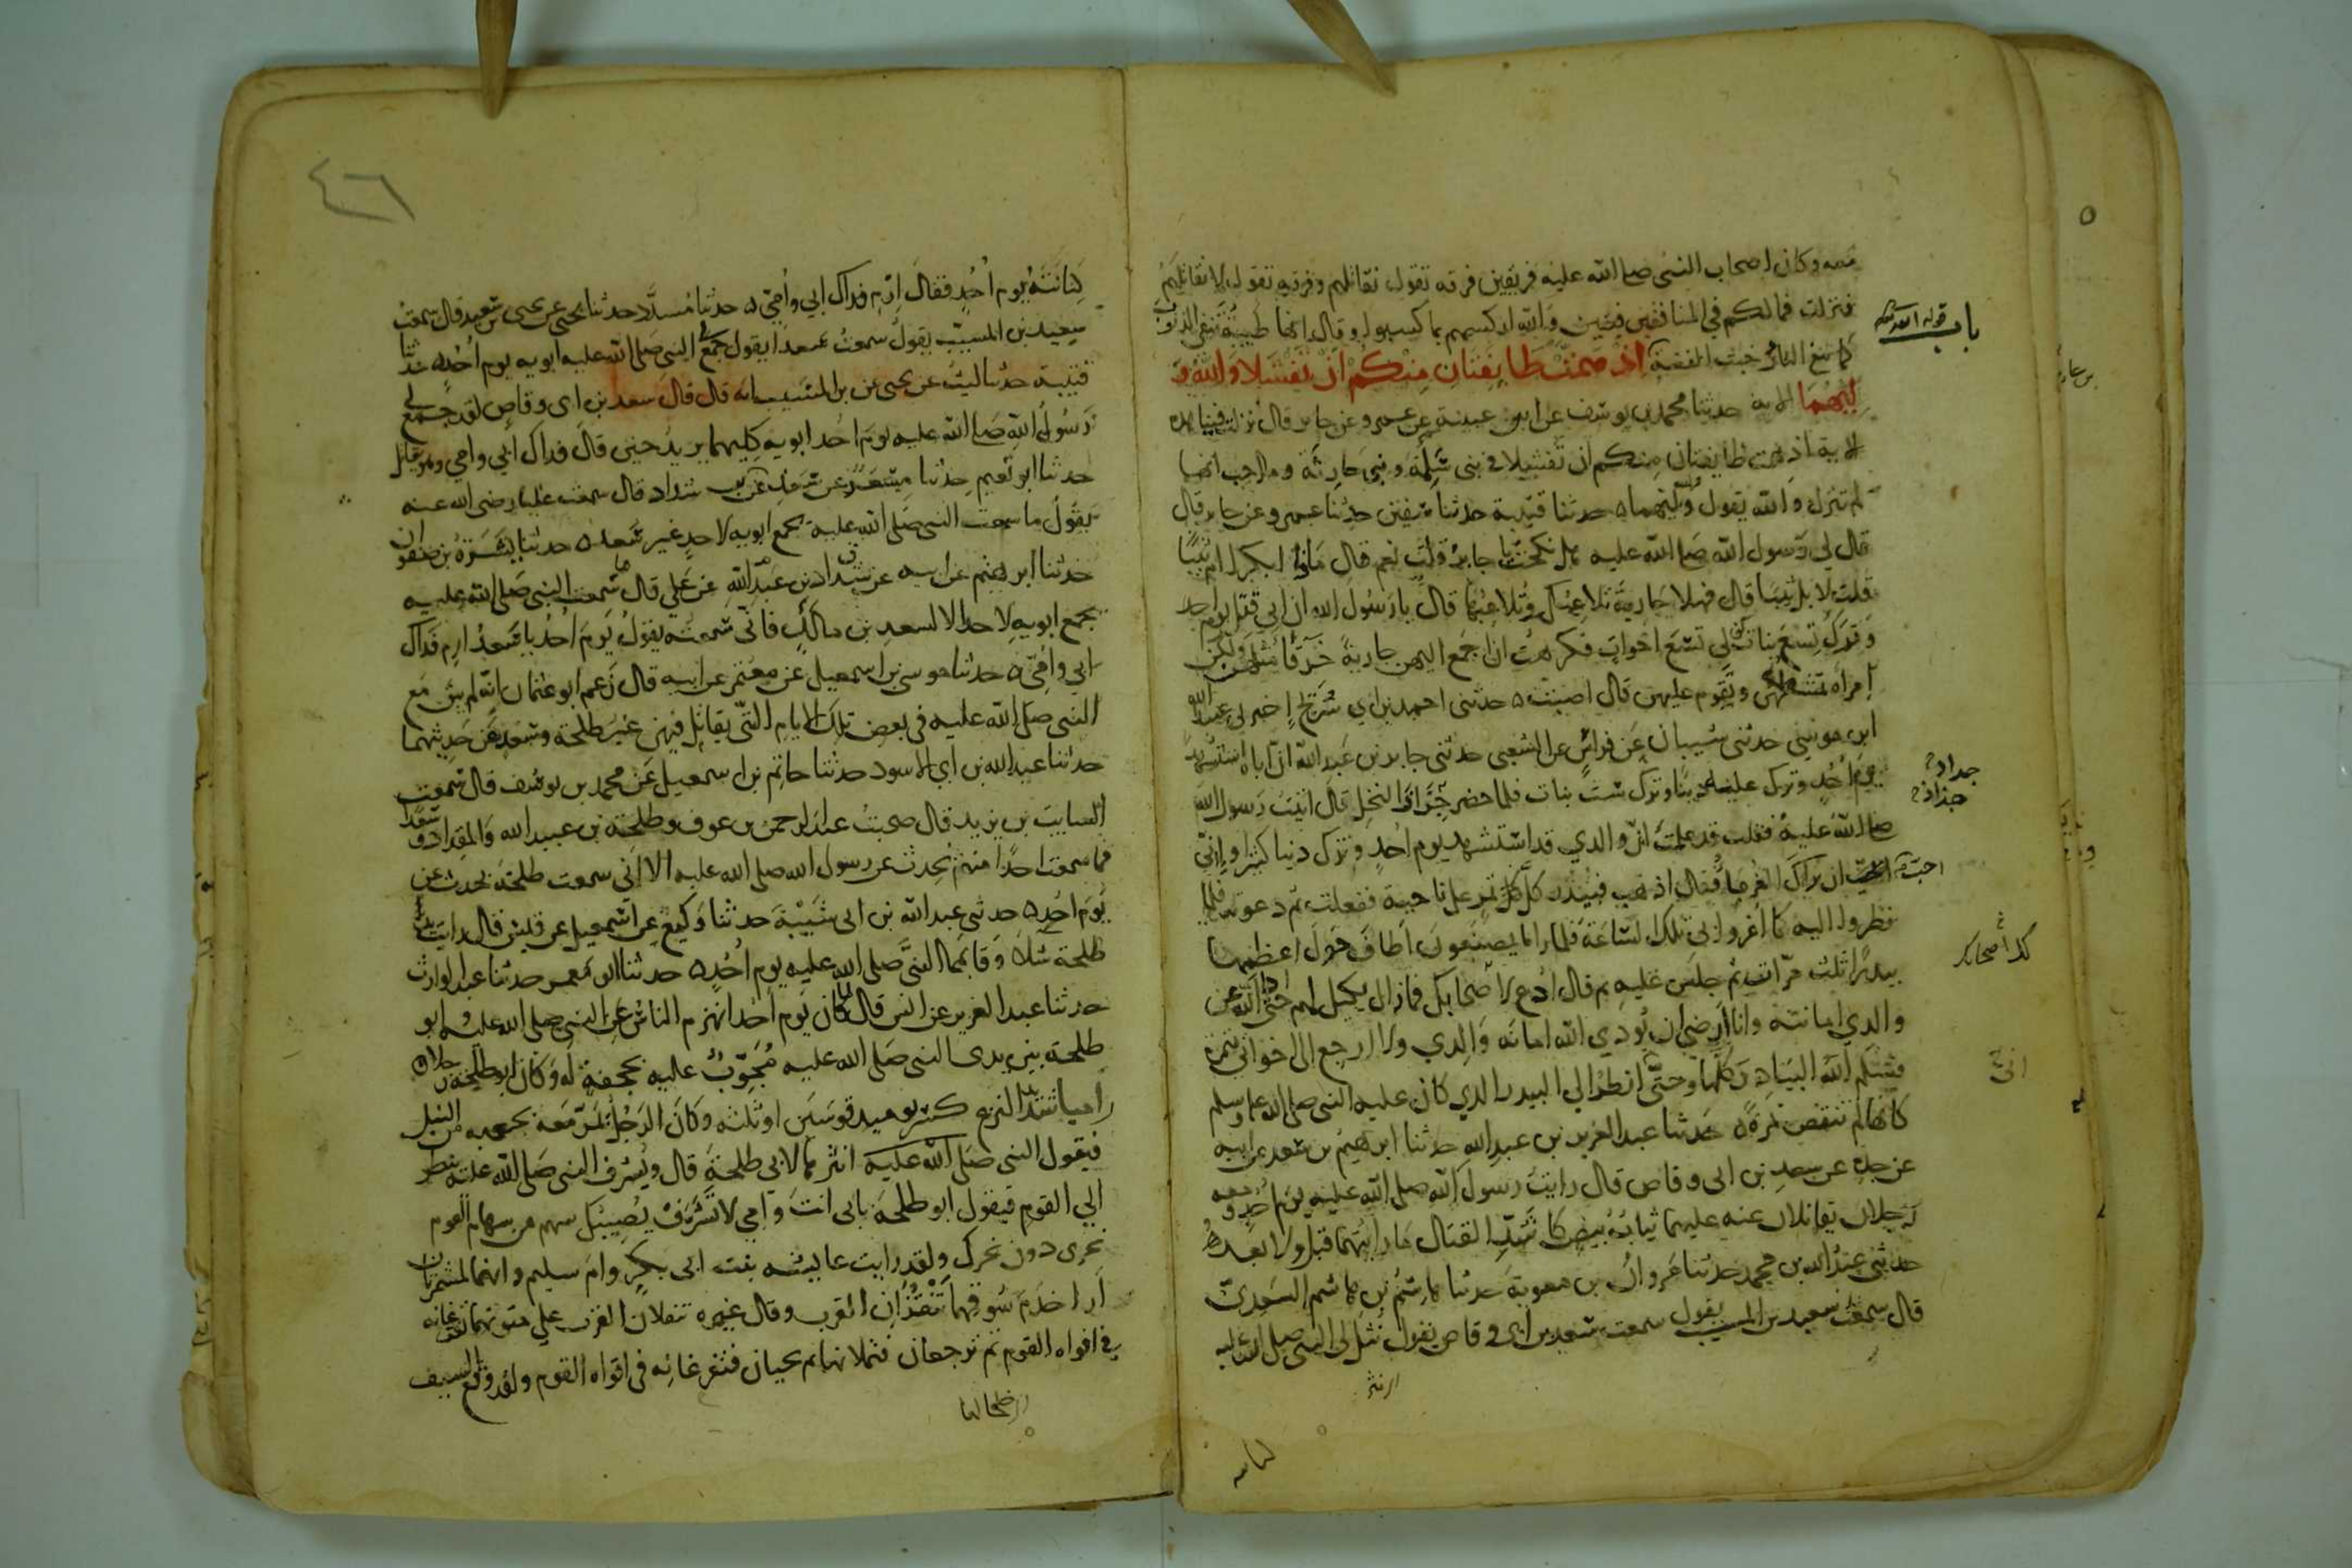 معه وكان اصحاب النبي صلى الله عليه فريقين فرقه تقول نقاتلهم وفرقه تقول لا نقاتلهم
فنزلت فما لكم في المنافقين فئتين والله اركسهم بما كسبوا وقال انها طيبة تنفي الذنوب
كما تنفي النار خبث الفضة اذ همت طايفتان منكم ان تفشلا والله و
ليهما الاية حدثنا محمد بن يوسف عن ابن عيينة عن عمرو عن جابر قال نزلت فينا هذه
الاية اذ همت طايفتان منكم ان تفشلا في بني سلمة وبني حارثة وما احب انها
لم تنزل والله يقول وليهما ٥ حدثنا قتيبة حدثنا سفين حدثنا عمرو عن جابر قال
قال لي رسول الله صلى الله عليه هل نكحت يا جابر قلت نعم قال ماذا ابكرا ام ثيبا
قلت لا بل ثيبا قال فهلا جارية تلاعبك وتلاعبها قال يا رسول الله ان ابي قتل يوم احد
وترك تسع بنات كن لي تسع اخوات فكرهت ان اجمع اليهن جارية خرقا مثلهن ولكن
امراة تمشطهن وتقوم عليهن قال اصبت ٥ حدثني احمد بن ابي سريج اخبرني عبيد الله
ابن موسى حدثني شيبان عن فراس عن الشعبي حدثني جابر بن عبد الله ان اباه استشهد
يوم احد وترك عليه دينا وترك ست بنات فلما حضر جزاز النخل قال اتيت رسول الله
صلى الله عليه فقلت قد علمت ان والدي قد استشهد يوم احد وترك دينا كثيرا واني
احب ان يراك الغرما فقال اذهب فبيدر كل تمر على ناحية ففعلت ثم دعوته فلما
نظروا اليه كانما اغروا بي تلك الساعة فلما راى ما يصنعون اطاف حول اعظمها
بيدرا ثلث مرات ثم جلس عليه ثم قال ادع لا اصحابك فما زال يكيل لهم حتى ادى الله عن
والدي امانته وانا ارضى ان يودي الله امانة والدي ولا ارجع الى اخواتي بتمرة
فسلم الله البيادر كلها وحتى اني انظر الي البيدر الذي كان عليه النبي صلى الله عليه وسلم
كانها لم تنقص تمرة ٥ حدثنا عبد العزيز بن عبد الله حدثنا ابرهيم بن سعد عن ابيه
عن جده عن سعد بن ابي وقاص قال رايت رسول الله صلى الله عليه يوم احد ومعه
رجلان يقاتلان عنه عليهما ثياب بيض كاشد القتال ما رايتهما قبل ولا بعد
حدثني عبد الله بن محمد حدثنا مروان بن معوية حدثنا هاشم بن هاشم السعدي
قال سمعت سعيد بن المسيب يقول سمعت سعد بن ابي وقاص يقول نثل لي النبي صلى الله عليه
باب قوله
جداد
جذاذ
احب
كذا اصحابك
اني
٤٦
كنانته يوم احد فقال ارم فداك ابي وامي ٥ حدثنا مسدد حدثنا يحيى عن يحيى بن سعيد قال سمعت
سعيد بن المسيب يقول سمعت سعدا يقول جمع لي النبي صلى الله عليه ابويه يوم احد ٥ حدثنا
قتيبة حدثنا ليث عن يحيى عن بن المسيب انه قال قال سعد بن ابي وقاص لقد جمع لي
رسول الله صلى الله عليه يوم احد ابويه كليهما يريد حين قال فداك ابي وامي وهو يقاتل
حدثنا ابو نعيم حدثنا مسعر عن سعد عن بن شداد قال سمعت عليا رضى الله عنه
يقول ما سمعت النبي صلى الله عليه يجمع ابويه لاحد غير سعد ٥ حدثنا يسرة بن صفوان
حدثنا ابرهيم عن ابيه عن شداد بن عبد الله عن علي قال ما سمعت النبي صلى الله عليه
يجمع ابويه لاحد الا لسعد بن مالك فاني سمعته يقول يوم احد يا سعد ارم فداك
ابي وامي ٥ حدثنا موسى بن اسمعيل عن معتمر عن ابيه قال زعم ابو عثمان انه لم يبق مع
النبي صلى الله عليه في بعض تلك الايام التي يقاتل فيهن غير طلحة وسعد عن حديثهما
حدثنا عبد الله بن ابي الاسود حدثنا حاتم بن اسمعيل عن محمد بن يوسف قال سمعت
السايب بن يزيد قال صحبت عبد الرحمن بن عوف وطلحة بن عبيد الله والمقداد وسعدا
فما سمعت احدا منهم يحدث عن رسول الله صلى الله عليه الا اني سمعت طلحة يحدث عن
يوم احد ٥ حدثني عبد الله بن ابي شيبة حدثنا وكيع عن اسمعيل عن قيس قال رايت يد
طلحة شلا وقا بها النبي صلى الله عليه يوم احد ٥ حدثنا ابو معمر حدثنا عبد الوارث
حدثنا عبد العزيز عن انس قال لما كان يوم احد انهزم الناس عن النبي صلى الله عليه وابو
طلحة بين يدي النبي صلى الله عليه مجوب عليه بحجفة له وكان ابو طلحة رجلا
راميا شديد النزع كسر يوميذ قوسين او ثلثه وكان الرجل يمر معه بجعبه من النبل
فيقول النبي صلى الله عليه انثرها لابي طلحة قال ويشرف النبي صلى الله عليه ينظر
الي القوم فيقول ابو طلحة بابي انت وامي لا تشرف يصيبك سهم من سهام القوم
نحري دون نحرك ولقد رايت عايشه بنت ابي بكر وام سليم وانهما لمشمرتان
ارا خدم سوقهما تنقزان القرب وقال غيره تنقلان القرب علي متونهما تفرغانه
في افواه القوم ثم ترجعان فتملانها ثم تجيان فتفرغانه في افواه القوم ولقد وقع السيف